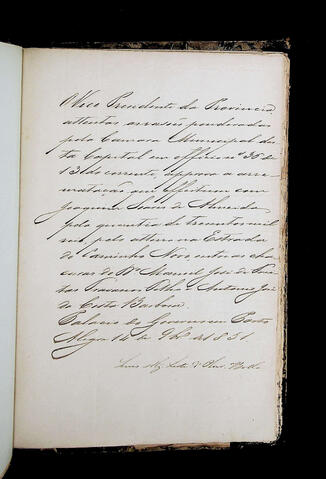 O Vice Presidente da Provincia,
attentas as rasões ponderadas
pela Camara Municipal des
ta Capital em officio nº 38 de
13 do corrente, approva a arre-
matação que effectuou com
Joaquim de Almeida
pela quantia de trezentos mil
reis pelo aterro na Estrada
do Caminho Novo, entre as cha
caras de Manoel José de Frei
tas Travassos Filho e Antonio José
da Costa Barbosa.
Palacio do Governo em Porto
Alegre 14 de 9bro de 1851.
Luis Leite d'Oliv. Bello